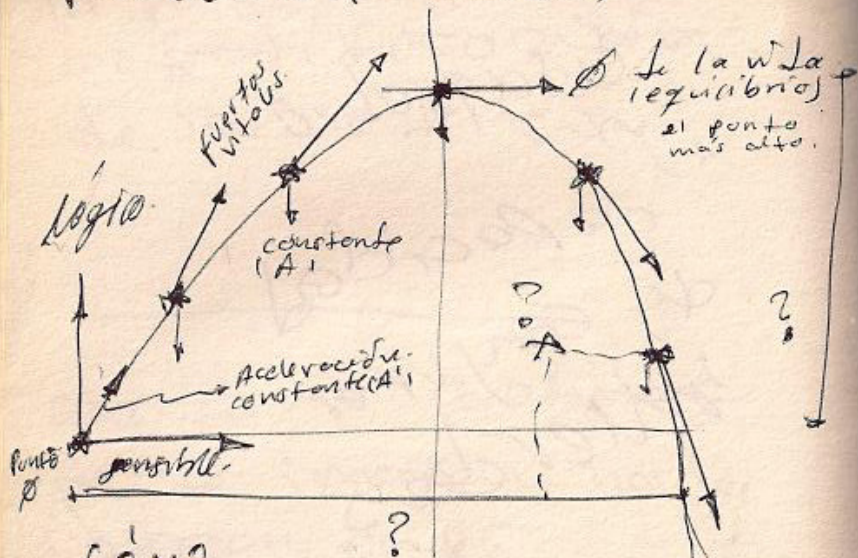 Ø de la vida
(equilibrios)
el punto
más alto.
Fuertos
vitales
Lógico
constante
(A)
?
?
Aceleración
constante(A)
Punto
Ø
sensible
?